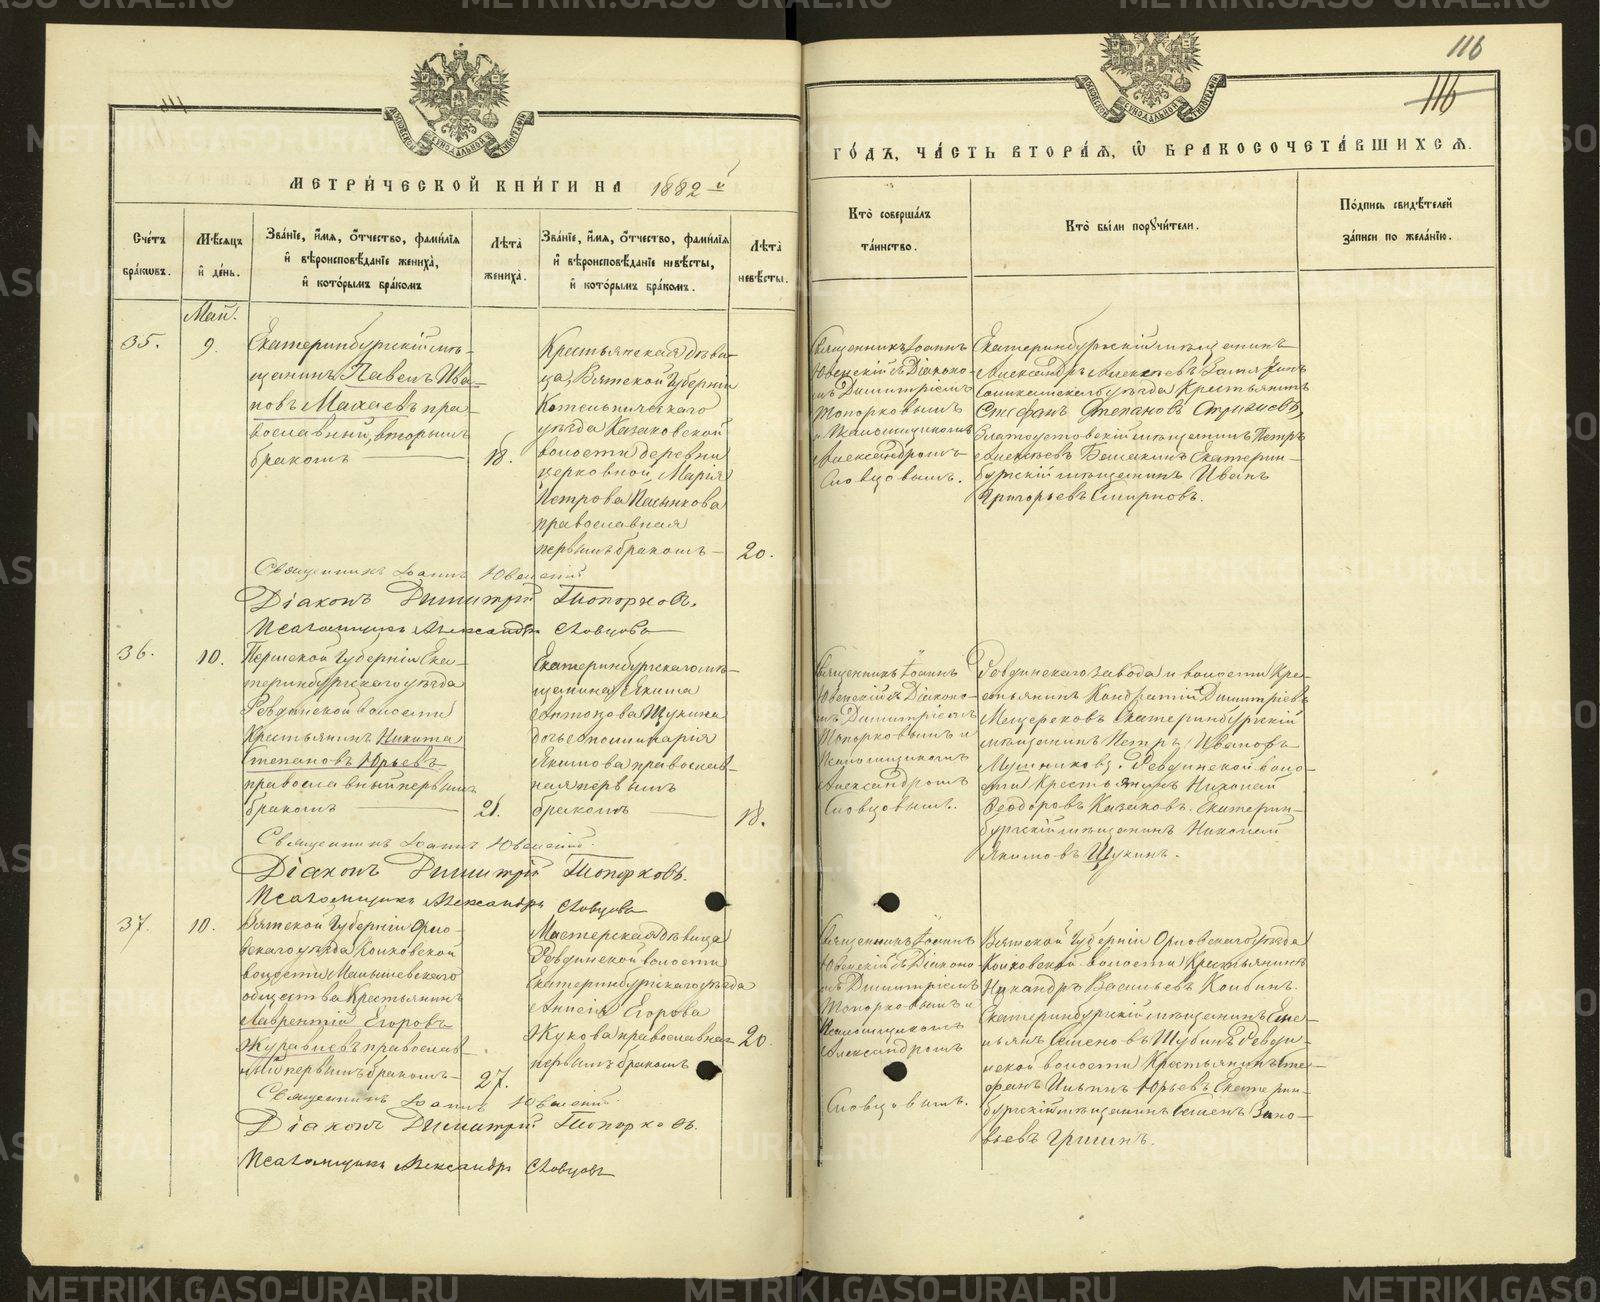 116
116
МЕТРИ́ЧЕСКОЙ КНИ́ГИ НА 1882 й
ГО́ДЪ, ЧА́СТЬ ВТОРА́Я, Ѡ БРАКОСОЧЕТА́ВШИХСЯ.
Сче́тъ бра́кѡвъ.
Мѣ́сяцъ и де́нь.
Зва́нїе, и́мя, ѻ́тчество, фами́лїя и вѣроисповѣ́данїе жениха̀, и кото́рымъ бра́комъ
Лѣ́та жениха̀.
Зва́нїе, и́мя, ѻ́тчество, фами́лїя и вѣроисповѣ́данїе невѣ́сты, и кото́рымъ бра́комъ.
Лѣ́та невѣ́сты.
Кто̀ соверша́лъ та́инство.
Кто̀ бы́ли порꙋчи́тели.
По́дпись свидѣ́телей за́писи по жела́нїю.
Май.
35.
9.
Екатеринбургскій мѣ-
щанинъ Павелъ Ива-
новъ Махаевъ пра-
вославный, вторымъ
бракомъ
18.
Крестьянская дѣви-
ца, Вятской Губерніи
Котельническаго
уѣзда Казаковской
волости деревни
церковной, Марія
Петрова Пасынкова
православная
первымъ бракомъ
20.
Священникъ Іоаннъ
Ювенскій съ Діаконо-
мъ Димитріемъ
Топорковымъ
и Псаломщикомъ
Александромъ
Словцовымъ.
Екатеринбургскій мѣщанинъ
Александръ Алексѣевъ
Соликамскаго уѣзда Крестьянинъ
Стефанъ Степановъ
Златоустовскій мѣщанинъ Петръ
Алексѣевъ Балакинъ Екатерин-
бургскій мѣщанинъ Иванъ
Григорьевъ Смирновъ.
Священникъ Іоаннъ Ювенскій
Діаконъ Димитрій Топорковъ.
Псаломщикъ Александръ Словцовъ
36.
10.
Пермской Губерніи Ека-
теринбургскаго уѣзда
Ревдинской волости
Крестьянинъ Никита
Степановъ Юрьевъ
православный первымъ
бракомъ
21.
Екатеринбургскаго мѣ-
щанина Якима
Антонова Щукина
дочь Апполинарія
Якимова православ-
ная первымъ
бракомъ
18.
Священникъ Іоаннъ
Ювенскій съ Діаконо-
мъ Димитріемъ
Топорковымъ и
Псаломщикомъ
Александромъ
Словцовымъ.
Ревдинскаго завода и волости Кре-
стьянинъ Кондратій Димитріевъ
Мещеряковъ Екатеринбургскій
мѣщанинъ Петръ Ивановъ
Мушниковъ. Ревдинской воло-
сти Крестьянинъ Николай
Феодоровъ Казаковъ. Екатерин-
бургскій мѣщанинъ Николай
Якимовъ Щукинъ.
Священникъ Іоаннъ Ювенскій.
Діаконъ Димитрій Топорковъ.
Псаломщикъ Александръ Словцовъ
37.
10.
Вятской Губерніи Орло-
вскаго уѣзда Колковской
волости Малышевскаго
общества Крестьянинъ
Лаврентій Егоровъ
Журавлевъ православ-
ный первымъ бракомъ
27.
Мастерская дѣвица
Ревдинской волости
Екатеринбургскаго уѣзда
Анисія Егорова
Жукова православная
первымъ бракомъ
20.
Священникъ Іоаннъ
Ювенскій съ Діаконо-
мъ Димитріемъ
Топорковымъ и
Псаломщикомъ
Александромъ
Словцовымъ.
Вятской Губерніи Орловскаго уѣзда
Колковской волости Крестьянинъ
Никандръ Васильевъ Колбинъ.
Екатеринбургскій мѣщанинъ Еме-
льянъ Семеновъ Шубинъ Ревди-
нской волости Крестьянинъ Сте-
фанъ Ильинъ Юрьевъ Екатерин-
бургскій мѣщанинъ Семенъ Зино-
вьевъ Гришинъ.
Священникъ Іоаннъ Ювенскій.
Діаконъ Димитрій Топорковъ.
Псаломщикъ Александръ Словцовъ
METRIKI.GASO-URAL.RU